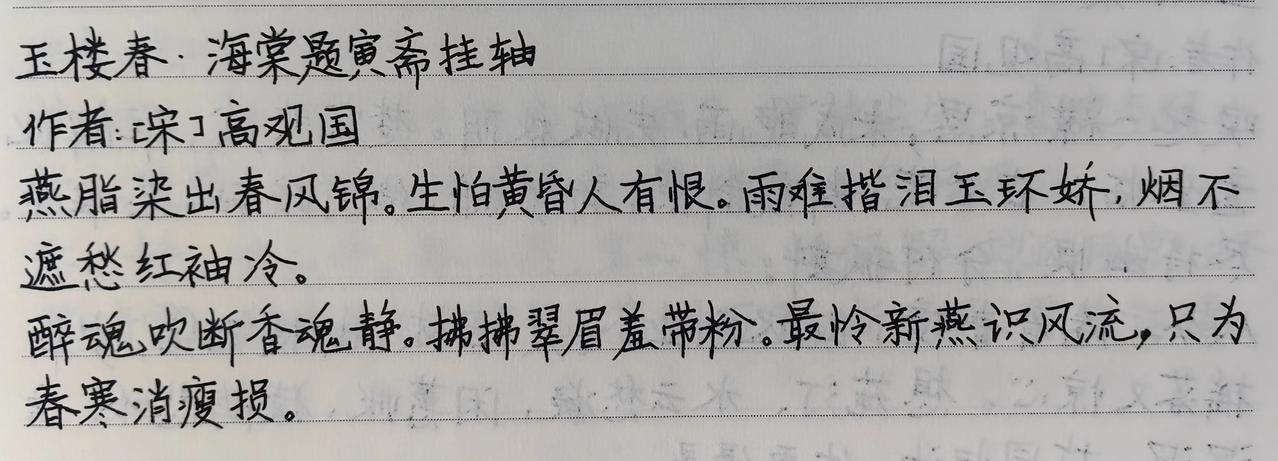 玉楼春·海棠题寅斋挂轴
作者:[宋]高观国
燕脂染出春风锦。生怕黄昏人有恨。雨难揩泪玉环娇,烟不
遮愁红袖冷。
醉魂吹断香魂静。拂拂翠眉羞带粉。最怜新燕识风流,只为
春寒消瘦损。